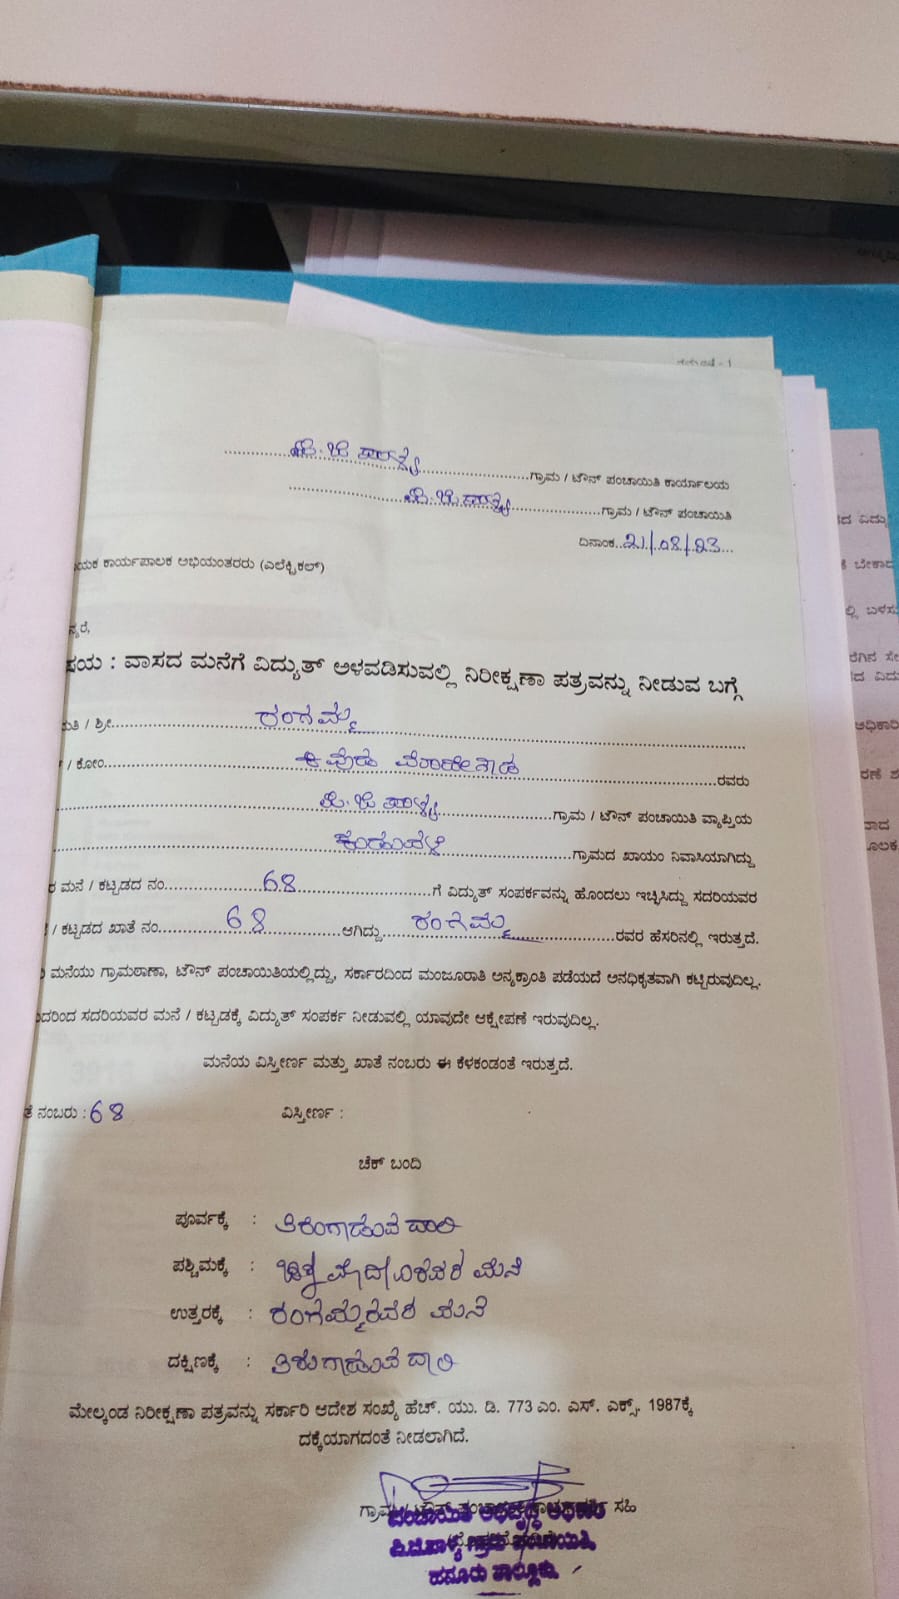 ಪಿ.ಜಿ ಪಾಳ್ಯ ಗ್ರಾಮ / ಟೌನ್ ಪಂಚಾಯಿತಿ ಕಾರ್ಯಾಲಯ
ಪಿ.ಜಿ ಪಾಳ್ಯ ಗ್ರಾಮ / ಟೌನ್ ಪಂಚಾಯಿತಿ
ದಿನಾಂಕ 21/08/23
ಯಕ ಕಾರ್ಯಪಾಲಕ ಅಭಿಯಂತರರು (ಎಲೆಕ್ಟ್ರಿಕಲ್)
ನ್ಯರೆ,
ಷಯ : ವಾಸದ ಮನೆಗೆ ವಿದ್ಯುತ್ ಅಳವಡಿಸುವಲ್ಲಿ ನಿರೀಕ್ಷಣಾ ಪತ್ರವನ್ನು ನೀಡುವ ಬಗ್ಗೆ
ಮತಿ / ಶ್ರೀ ರಂಗಮ್ಮ
/ ಕೋಂ ರವರು
ಪಿ.ಜಿ ಪಾಳ್ಯ ಗ್ರಾಮ / ಟೌನ್ ಪಂಚಾಯಿತಿ ವ್ಯಾಪ್ತಿಯ
ಗ್ರಾಮದ ಖಾಯಂ ನಿವಾಸಿಯಾಗಿದ್ದು
ರ ಮನೆ / ಕಟ್ಟಡದ ನಂ. 68 ಗೆ ವಿದ್ಯುತ್ ಸಂಪರ್ಕವನ್ನು ಹೊಂದಲು ಇಚ್ಛಿಸಿದ್ದು ಸದರಿಯವರ
/ ಕಟ್ಟಡದ ಖಾತೆ ನಂ. 68 ಆಗಿದ್ದು ರಂಗಮ್ಮ ರವರ ಹೆಸರಿನಲ್ಲಿ ಇರುತ್ತದೆ.
ಮನೆಯು ಗ್ರಾಮಠಾಣಾ, ಟೌನ್ ಪಂಚಾಯಿತಿಯಲ್ಲಿದ್ದು, ಸರ್ಕಾರದಿಂದ ಮಂಜೂರಾತಿ ಅನ್ಯಕ್ರಾಂತಿ ಪಡೆಯದೆ ಅನಧಿಕೃತವಾಗಿ ಕಟ್ಟಿರುವುದಿಲ್ಲ.
ದರಿಂದ ಸದರಿಯವರ ಮನೆ / ಕಟ್ಟಡಕ್ಕೆ ವಿದ್ಯುತ್ ಸಂಪರ್ಕ ನೀಡುವಲ್ಲಿ ಯಾವುದೇ ಆಕ್ಷೇಪಣೆ ಇರುವುದಿಲ್ಲ.
ಮನೆಯ ವಿಸ್ತೀರ್ಣ ಮತ್ತು ಖಾತೆ ನಂಬರು ಈ ಕೆಳಕಂಡಂತೆ ಇರುತ್ತದೆ.
ತೆ ನಂಬರು : 68 ವಿಸ್ತೀರ್ಣ :
ಚೆಕ್ ಬಂದಿ
ಪೂರ್ವಕ್ಕೆ : ತಿರುಗಾಡುವ ದಾರಿ
ಪಶ್ಚಿಮಕ್ಕೆ : ಮನೆ
ಉತ್ತರಕ್ಕೆ : ರಂಗಮ್ಮರವರ ಮನೆ
ದಕ್ಷಿಣಕ್ಕೆ : ತಿರುಗಾಡುವ ದಾರಿ
ಮೇಲ್ಕಂಡ ನಿರೀಕ್ಷಣಾ ಪತ್ರವನ್ನು ಸರ್ಕಾರಿ ಆದೇಶ ಸಂಖ್ಯೆ ಹೆಚ್. ಯು. ಡಿ. 773 ಎಂ. ಎಸ್. ಎಕ್ಸ್. 1987ಕ್ಕೆ
ದಕ್ಕೆಯಾಗದಂತೆ ನೀಡಲಾಗಿದೆ.
ಗ್ರಾಮ / ಟೌನ್ ಸಹಿ
ಪಂಚಾಯಿತಿ ಅಭಿವೃದ್ಧಿ ಅಧಿಕಾರಿ
ಪಿ.ಜಿ.ಪಾಳ್ಯ ಗ್ರಾಮ ಪಂಚಾಯಿತಿ,
ಹನೂರು ತಾಲ್ಲೂಕು.